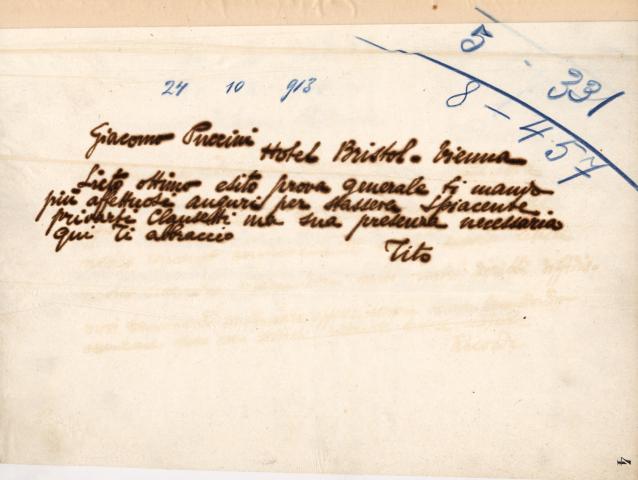 5 . 331
8 - 457
24 10 913
Giacomo Puccini
Hotel Bristol - Vienna
Lieto ottimo esito prova generale ti mando
più affettuosi auguri per stassera Spiacente
privarti Clausetti ma sua presenza necessaria
qui Ti abbraccio
Tito
4